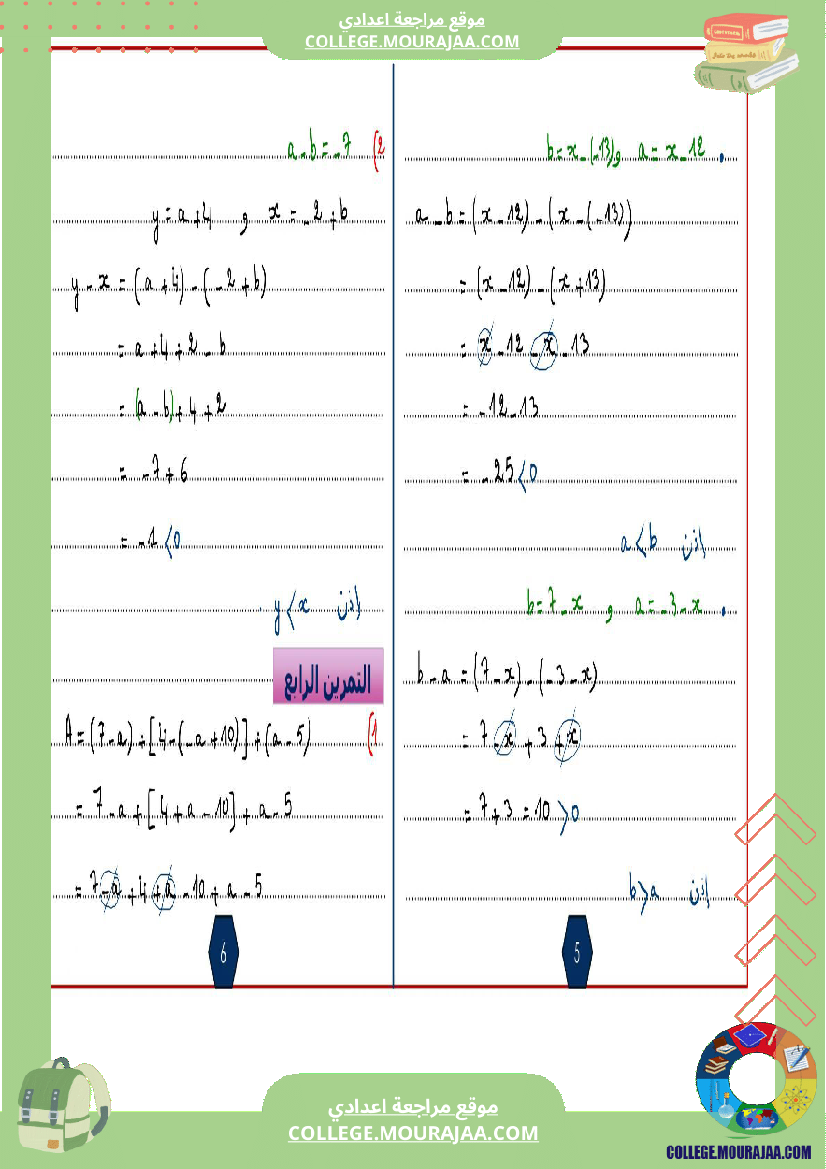 موقع مراجعة اعدادي
COLLEGE.MOURAJAA.COM
• a = x - 12 و b = x - (-13)
a - b = (x - 12) - (x - (-13))
= (x - 12) - (x + 13)
= x - 12 - x - 13
= -12 - 13
= -25 < 0
إذن a < b
• a = -3 - x و b = 7 - x
b - a = (7 - x) - (-3 - x)
= 7 - x + 3 + x
= 7 + 3 = 10 > 0
إذن b > a
5
2) a - b = -7
x = -2 + b و y = a + 4
y - x = (a + 4) - (-2 + b)
= a + 4 + 2 - b
= (a - b) + 4 + 2
= -7 + 6
= -1 < 0
إذن y < x
التمرين الرابع
1) A = (7 - a) + [4 - (-a + 10)] + (a - 5)
= 7 - a + [4 + a - 10] + a - 5
= 7 - a + 4 + a - 10 + a - 5
6
موقع مراجعة اعدادي
COLLEGE.MOURAJAA.COM
COLLEGE.MOURAJAA.COM